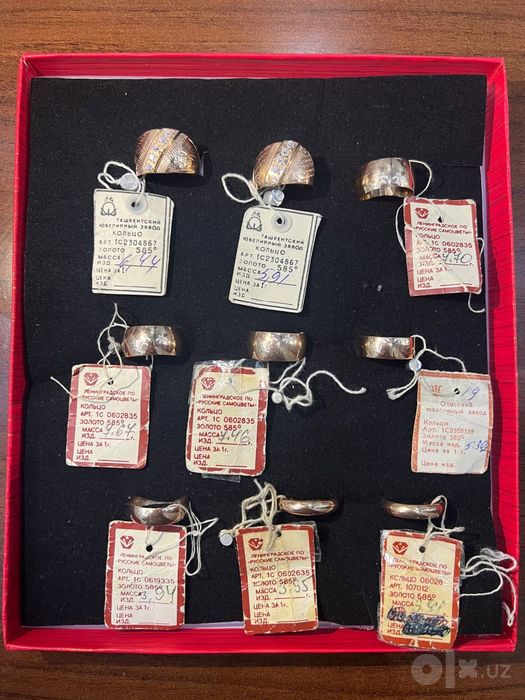 ТАШКЕНТСКИЙ
ЮВЕЛИРНЫЙ ЗАВОД
КОЛЬЦО
АРТ 1С2304867
ЗОЛОТО 585°
МАССА
ИЗД. 6,44
ЦЕНА ЗА 1г.
ЦЕНА
ИЗД
ТАШКЕНТСКИЙ
ЮВЕЛИРНЫЙ ЗАВОД
КОЛЬЦО
АРТ 1С2304867
ЗОЛОТО 585°
МАССА
ИЗД. 5,91
ЦЕНА ЗА 1г.
ЦЕНА
ИЗД
ЛЕНИНГРАДСКОЕ ПО
«РУССКИЕ САМОЦВЕТЫ»
КОЛЬЦО
АРТ. 1С 0602835
ЗОЛОТО 585°
МАССА
ИЗД. 7,70 г.
ЦЕНА ЗА 1г.
ЦЕНА
ИЗД.
ЛЕНИНГРАДСКОЕ ПО
«РУССКИЕ САМОЦВЕТЫ»
КОЛЬЦО
АРТ. 1С 0602835
ЗОЛОТО 585°
МАССА
ИЗД. 7,67 г.
ЦЕНА ЗА 1г.
ЦЕНА
ИЗД.
ЛЕНИНГРАДСКОЕ ПО
«РУССКИЕ САМОЦВЕТЫ»
КОЛЬЦО
АРТ. 1С 0602835
ЗОЛОТО 585°
МАССА
ИЗД. 7,46 г.
ЦЕНА ЗА 1г.
ЦЕНА
ИЗД.
Одесский
ювелирный завод
Кольцо
Золото 585°
Масса изд.
Цена за 1г.
Цена изд.
ЛЕНИНГРАДСКОЕ ПО
«РУССКИЕ САМОЦВЕТЫ»
КОЛЬЦО
АРТ. 1С 0619335
ЗОЛОТО 585°
МАССА
ИЗД. 3,94
ЦЕНА ЗА 1г.
ЦЕНА
ИЗД.
ЛЕНИНГРАДСКОЕ ПО
«РУССКИЕ САМОЦВЕТЫ»
КОЛЬЦО
АРТ. 1С 0602635
ЗОЛОТО 585°
МАССА
ИЗД.
ЦЕНА ЗА 1г.
ЦЕНА
ИЗД.
ЛЕНИНГРАДСКОЕ ПО
«РУССКИЕ САМОЦВЕТЫ»
КОЛЬЦО 06026
АРТ. 107012
ЗОЛОТО 585°
МАССА
ИЗД.
ЦЕНА
ИЗД.
olx.uz